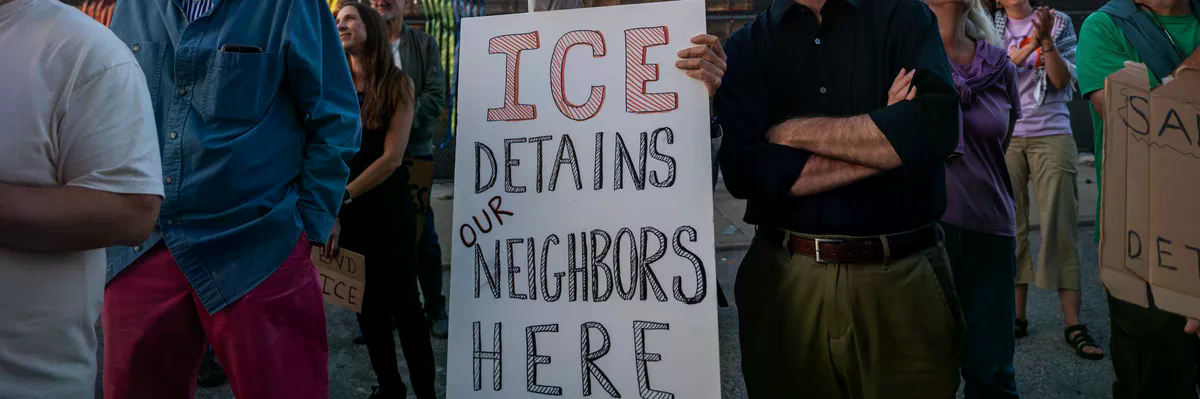 ICE
DETAINS
OUR
NEIGHBORS
HERE
ICE
SA
DET